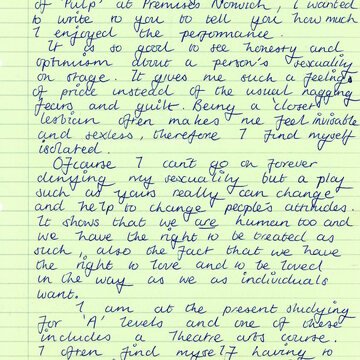 of 'Pulp' at Premises Norwich, I wanted
to write to you to tell you how much
I enjoyed the performance.
It is so good to see honesty and
optimism about a person's sexuality
on stage. It gives me such a feeling
of pride instead of the usual nagging
fears and guilt. Being a 'closet'
lesbian often makes me feel invisible
and sexless, therefore I find myself
isolated.
Ofcourse I can't go on forever
denying my sexuality but a play
such as yours really can change
and help to change people's attitudes.
It shows that we are human too and
we have the right to be treated as
such, also the fact that we have
the right to love and to be loved
in the way as we as individuals
want.
I am at the present studying
for 'A' levels and one of these
includes a Theatre arts course.
I often find myself having to